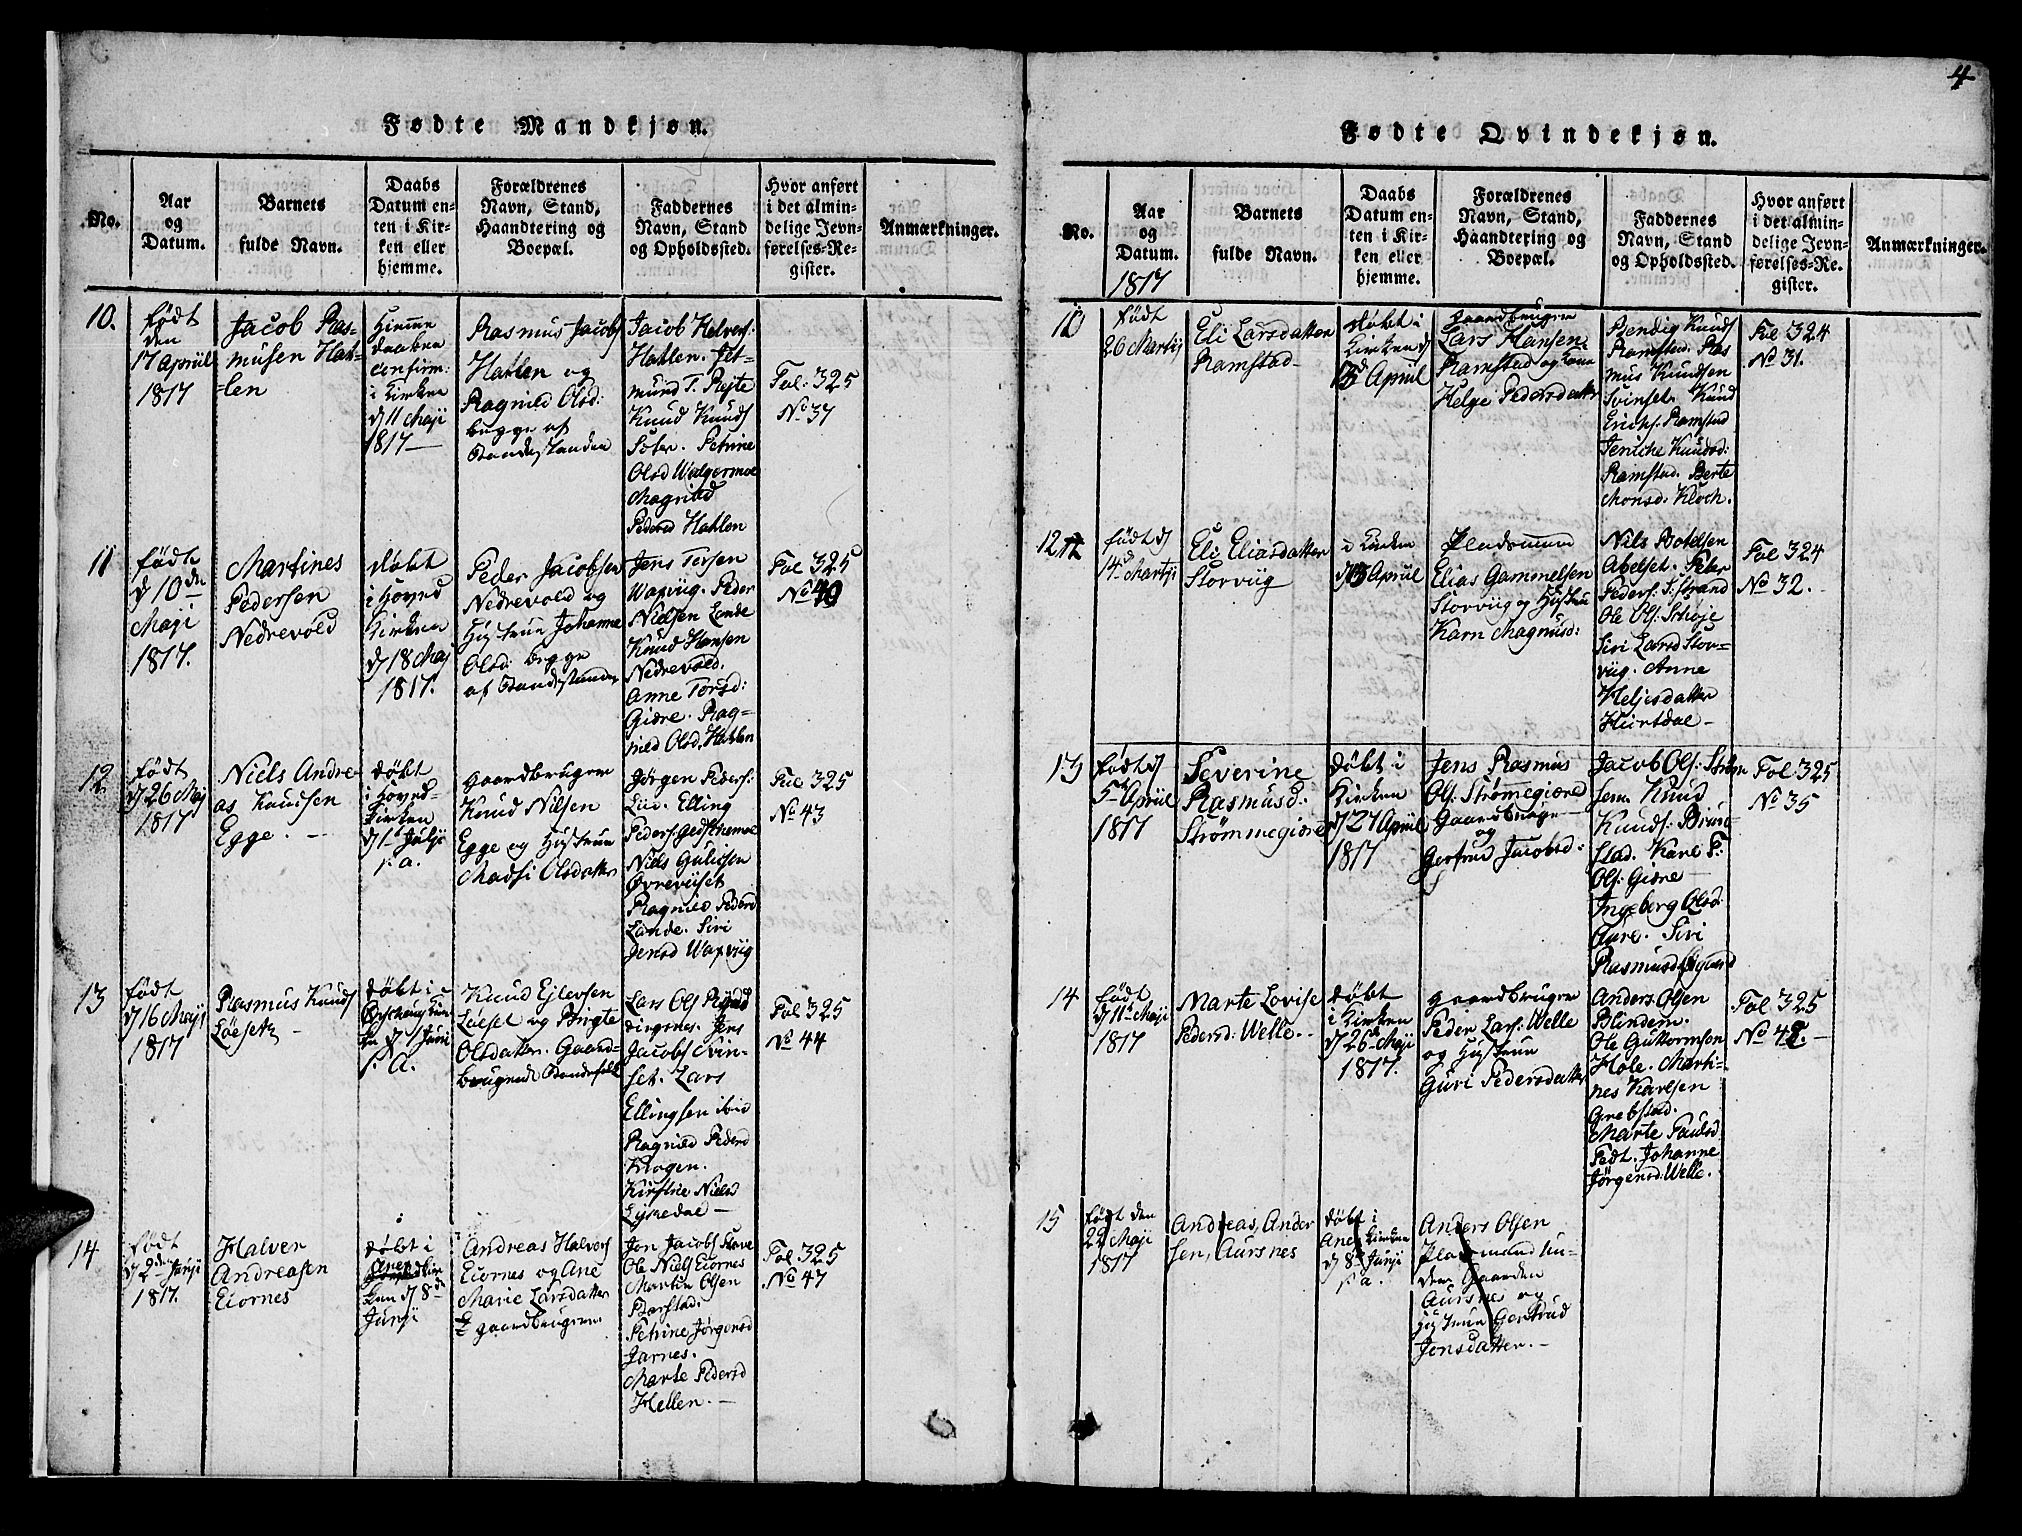 4
Fødte Mandkjøn.
No.
Aar
og
Datum.
Barnets
fulde Navn.
Daabs
Datum en-
ten i Kir-
ken eller
hjemme.
Forældrenes
Navn, Stand,
Haandtering og
Boepæl.
Faddernes
Navn, Stand
og Opholdsted.
Hvor anført
i det almin-
delige Jevn-
førelses-Re-
gister.
Anmærkninger.
10.
født
den
17 Apriil
1817
Jacob Ras-
musen Hat-
len
Hiemme
confirm:
i Kirken
d 11 Maji
1817
Rasmus Jacobs
Hatlen og
Ragnild Olsd:
begge af
Bondestanden
Jacob Halvors:
Hatlen. Jet-
mund T. Røjte
Knud Knuds
Soter. Petrine
Olsd Walgermoe
Magrild
Pedersd Hatlen
Fol: 325
No 37
11
født
d 10de
Maji
1817.
Martines
Pedersen
Nedrevold
døbt
i Hoved
Kirken
d 18 Maj
1817.
Peder Jacobsen
Nedrevold og
Hustrue Johanne
Olsd: begge
af Bondestanden
Jens Torsen
Waxviig. Peder
Nielsen Lande
Knud Hansen
Nedrevold.
Anne Torsd:
Giære. Rag-
nild Olsd. Hatlen
Fol 325
No 40
12
født
d 26 Maj
1817
Niels Andre
as Knudsen
Egge.
døbt
i Hoved-
Kirken
d 1 Junji
s. a.
Gaardbruger
Knud Nilsen
Egge og Hustrue
Madsi Olsdatter
Jørgen Peders:
Lie. Elling
Peders: Gedskemoe
Niels Gulicsen
Øvreviiset
Ragnild Pedersd
Lande. Siri
Jensd Waxviig
Fol 325
No 43
13
født
d 16 Maji
1817
Rasmus Knuds
Løeset
døbt i
Ørskoug Kir-
ken d 7 Junii
s. a.
Knud Ejlevsen
Løeset og Brigte
Olsdatter. Gaard-
brugende Bondefolk
Lars Ols
Jens
Jacobs Svin-
set. Lars
Ellingsen ibid
Ragnild Pedersd
Klogen.
Kirstine Nielsd
Lyshedal
Fol 325
No 44
14
født
d 2den Junji
1817.
Halver
Andreasen
Eiornes
døbt i
Anex
Kir-
ken d 8de
Junji
Andreas Halvors
Eiornes og Ane
Marie Larsdatter
E gaardbrugere
Jon Jacobs Stave
Ole Niels Eiornes
Martin Olsen
Barstad.
Petrine Jørgensd
Jarnes.
Marte Pedersd
Hellen.
Fol 325
No 47
Fødte Qvindekjøn.
No.
Aar
og
Datum.
1817
Barnets
fulde Navn.
Daabs
Datum en-
ten i Kir-
ken eller
hjemme.
Forældrenes
Navn, Stand,
Haandtering og
Boepæl.
Faddernes
Navn, Stand
og Opholdssted.
Hvor anført
i det almin-
delige Jevn-
førelses-Re-
gister.
Anmærkninger.
født
26 Martij
Eli Larsdatter
Ramstad
døbt i
Kirken d
13 Apriil
Gaardbruger
Lars Hansen
Ramstad og
Helge Pedersdatter
Bendig Knuds
Ramstad. Ras
mus Knudsen
Svinset. Knud
Erichs. Ramstad
Jeniche Knudsd:
Ramstad. Berte
Monsd. Kloch.
Fol 324
No 31.
12
født d
14 Martji
Eli Eliasdatter
Storviig
i Kirken
d 13 Apriil
Pladsmand
Elias Gammelsen
Storviig og Hustrue
Karn Magnusd:
Nils Botelsen
Abelset. Peter
Peders: S:Strand
Ole Ols: Schoje
Siri Larsd Stor-
viig. Anne
Heljesdatter
Hiortdal
Fol 324
No 32.
13
født d
5 Apriil
1817
Severine
Rasmusd:
Strømmegiære
døbt i
Kirken
d 27 Apriil
1817
Jens Rasmus
Ols: Strømegiære
Gaardbruger
og
Gertrud Jacobsd:
Jacob Ols: Strøm
sem. Knud
Knuds: Bruu-
stad. Kare P:
Ols: Giære
Ingeborg Olsd:
Aure. Siri
Rasmusd
Fol 325
No 35
14
født
d 11 Maji
1817
Marte Lovise
Pedersd: Welle.
døbt
i Kirken
d 26 Maji
1817.
Gaardbruger
Peder Lars: Welle
og Hustrue
Guri Pedersdatter
Anders Olsen
Blindem.
Ole Guttormsen
Hole. Marti-
nes Karlsen
Grebstad.
Marte Poulsd
Fedt. Johanne
Jørgensd: Welle.
Fol 325
15
født den
22 Maji
1817
Andreas, Ander
sen, Aursnes
døbt i
Anex Kirken
d 8 Junji
s. a.
Anders Olsen
Pladsmand un-
der Gaarden
Aursnes og
Hustrue Gertrud
Jonsdatter.